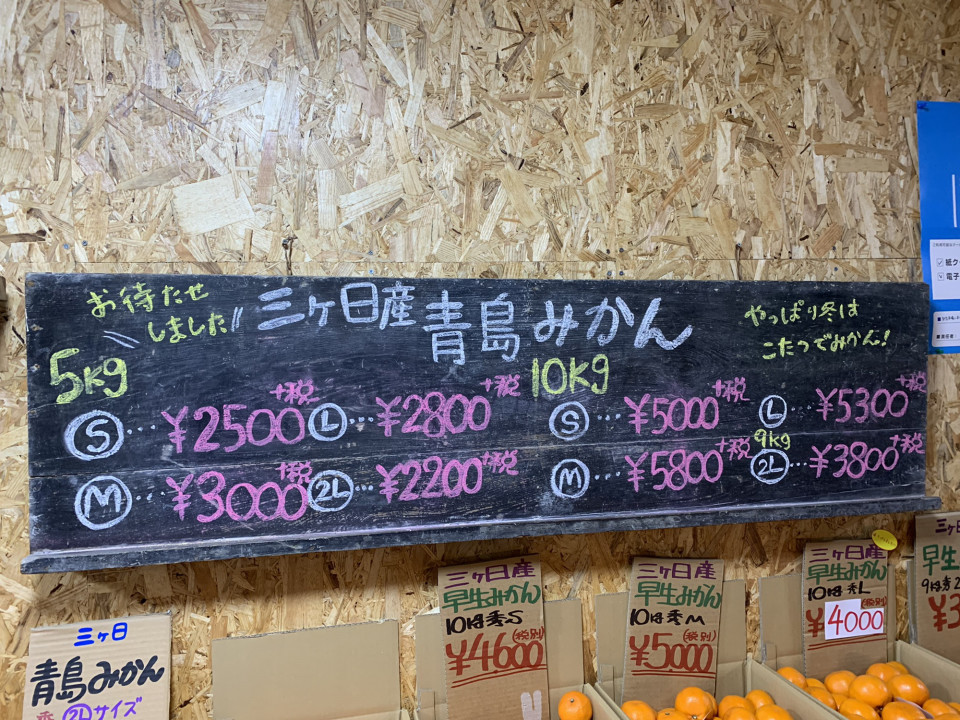 お待たせ
しました!!
三ヶ日産青島みかん
やっぱり冬は
こたつでみかん!
5kg
Ⓢ…¥2500+税
Ⓛ…¥2800+税
Ⓜ…¥3000+税
2L…¥2200+税
10kg
Ⓢ…¥5000+税
Ⓛ…¥5300+税
Ⓜ…¥5800+税
9kg
2L…¥3800+税
三ヶ日
青島みかん
2Lサイズ
三ヶ日産
早生みかん
10kg秀S
(税別)
¥4600
三ヶ日産
早生みかん
10kg秀M
(税別)
¥5000
三ヶ日産
早生みかん
10kg秀L
(税別)
¥4000
三ヶ
早生
9kg秀2
¥3
紙ク
電子